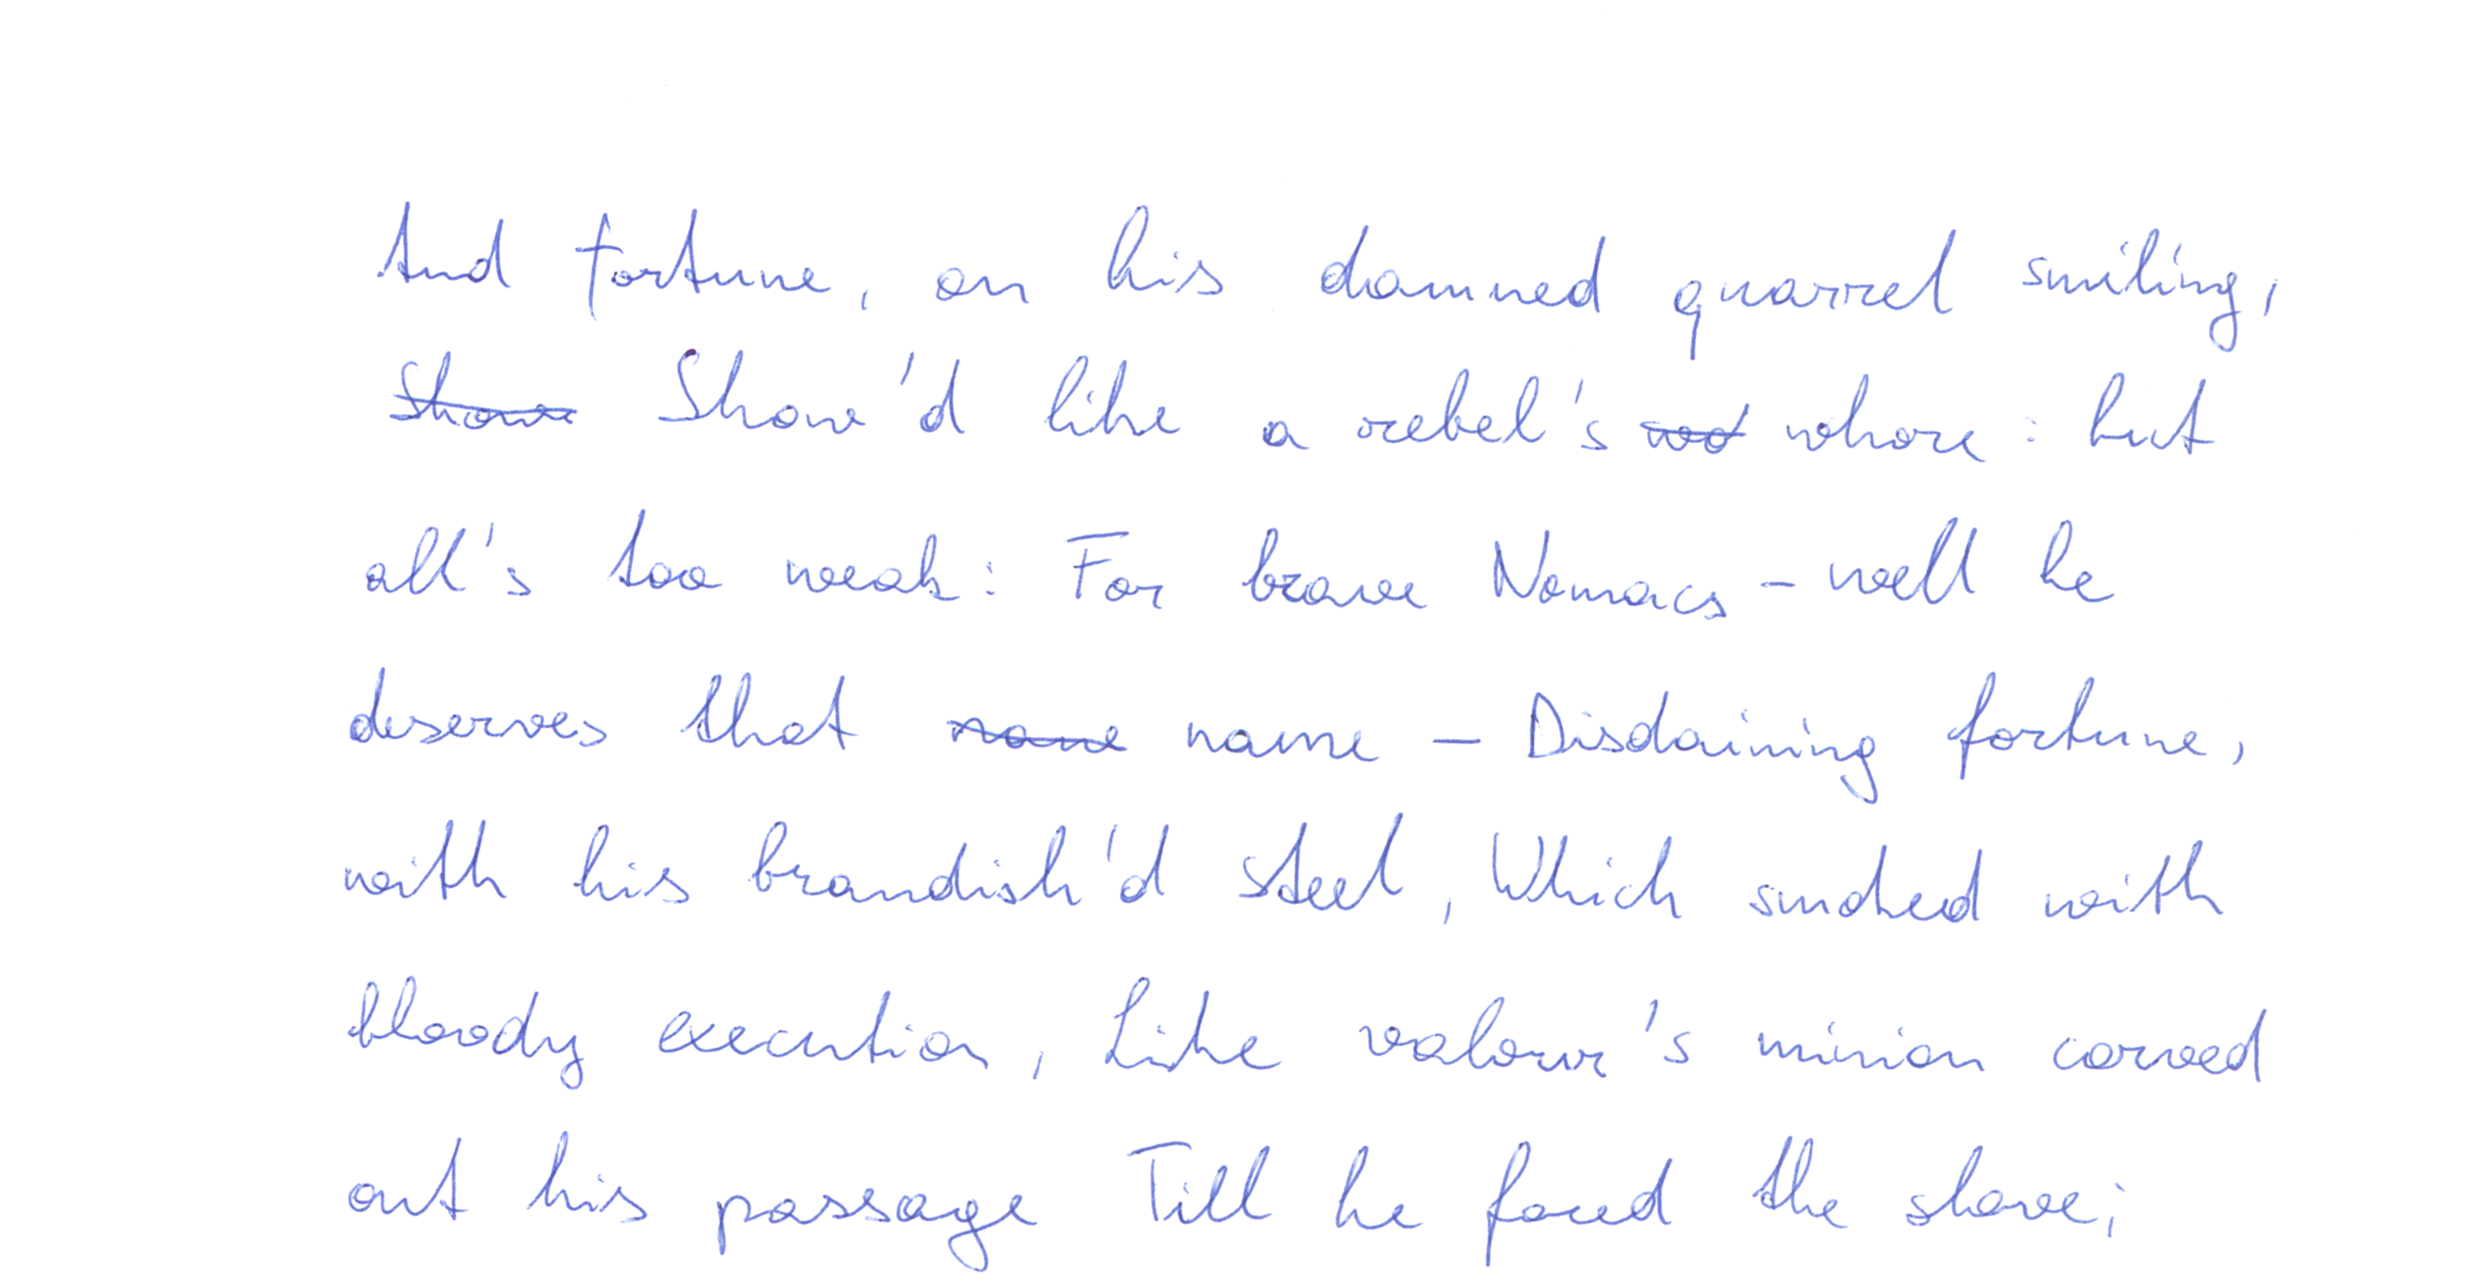 And fortune, on his damned quarrel smiling,
Show Show'd like a rebel's whore : but
all's too weak : For brave Nomacs - well he
deserves that name name - Disdaining fortune,
with his brandish'd steel, Which smoked with
bloody execution, Like valour's minion carved
out his passage Till he faced the slave;